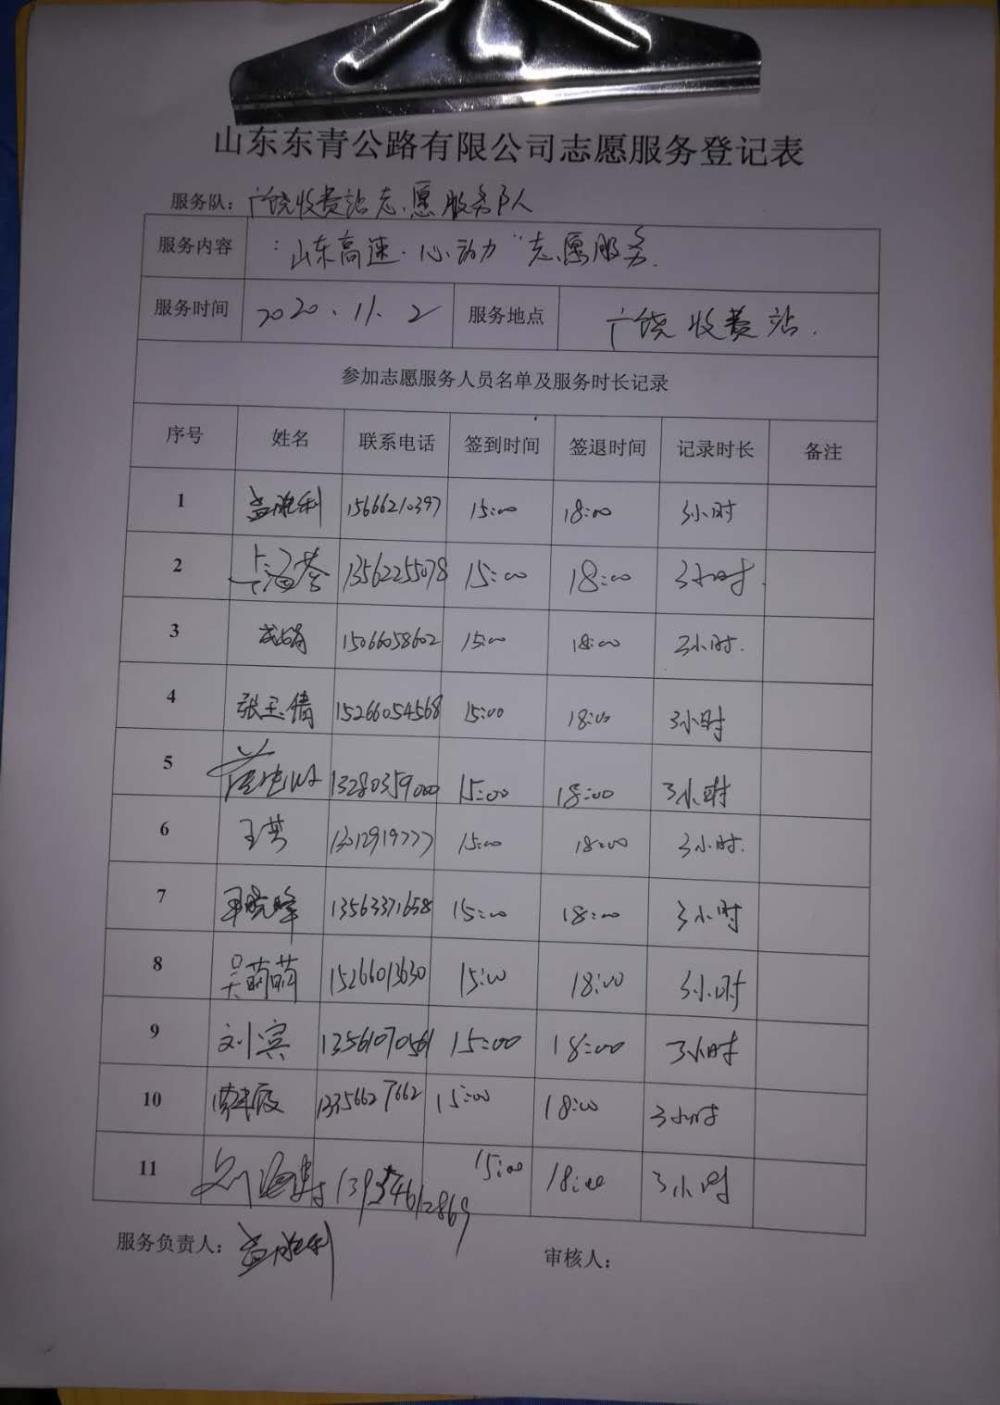 山东东青公路有限公司志愿服务登记表
服务队：广饶收费站志愿服务队
服务内容 “山东高速·心动力”志愿服务.
服务时间 2020.11.2 服务地点 广饶收费站.
参加志愿服务人员名单及服务时长记录
序号 姓名 联系电话 签到时间 签退时间 记录时长 备注
1 孟胜利 15666210397 15:00 18:00 3小时
2 1356225578 15:00 18:00 3小时.
3 成娟 15066058602 15:00 18:00 3小时.
4 张玉倩 15266054568 15:00 18:00 3小时
5 13280359000 15:00 18:00 3小时
6 王芳 15:00 18:00 3小时.
7 王晓峰 13563371658 15:00 18:00 3小时
8 吴萌萌 15266013630 15:00 18:00 3小时
9 刘宾 13561070561 15:00 18:00 3小时
10 15:00 18:00 3小时
11 15:00 18:00 3小时
服务负责人：孟胜利 审核人：